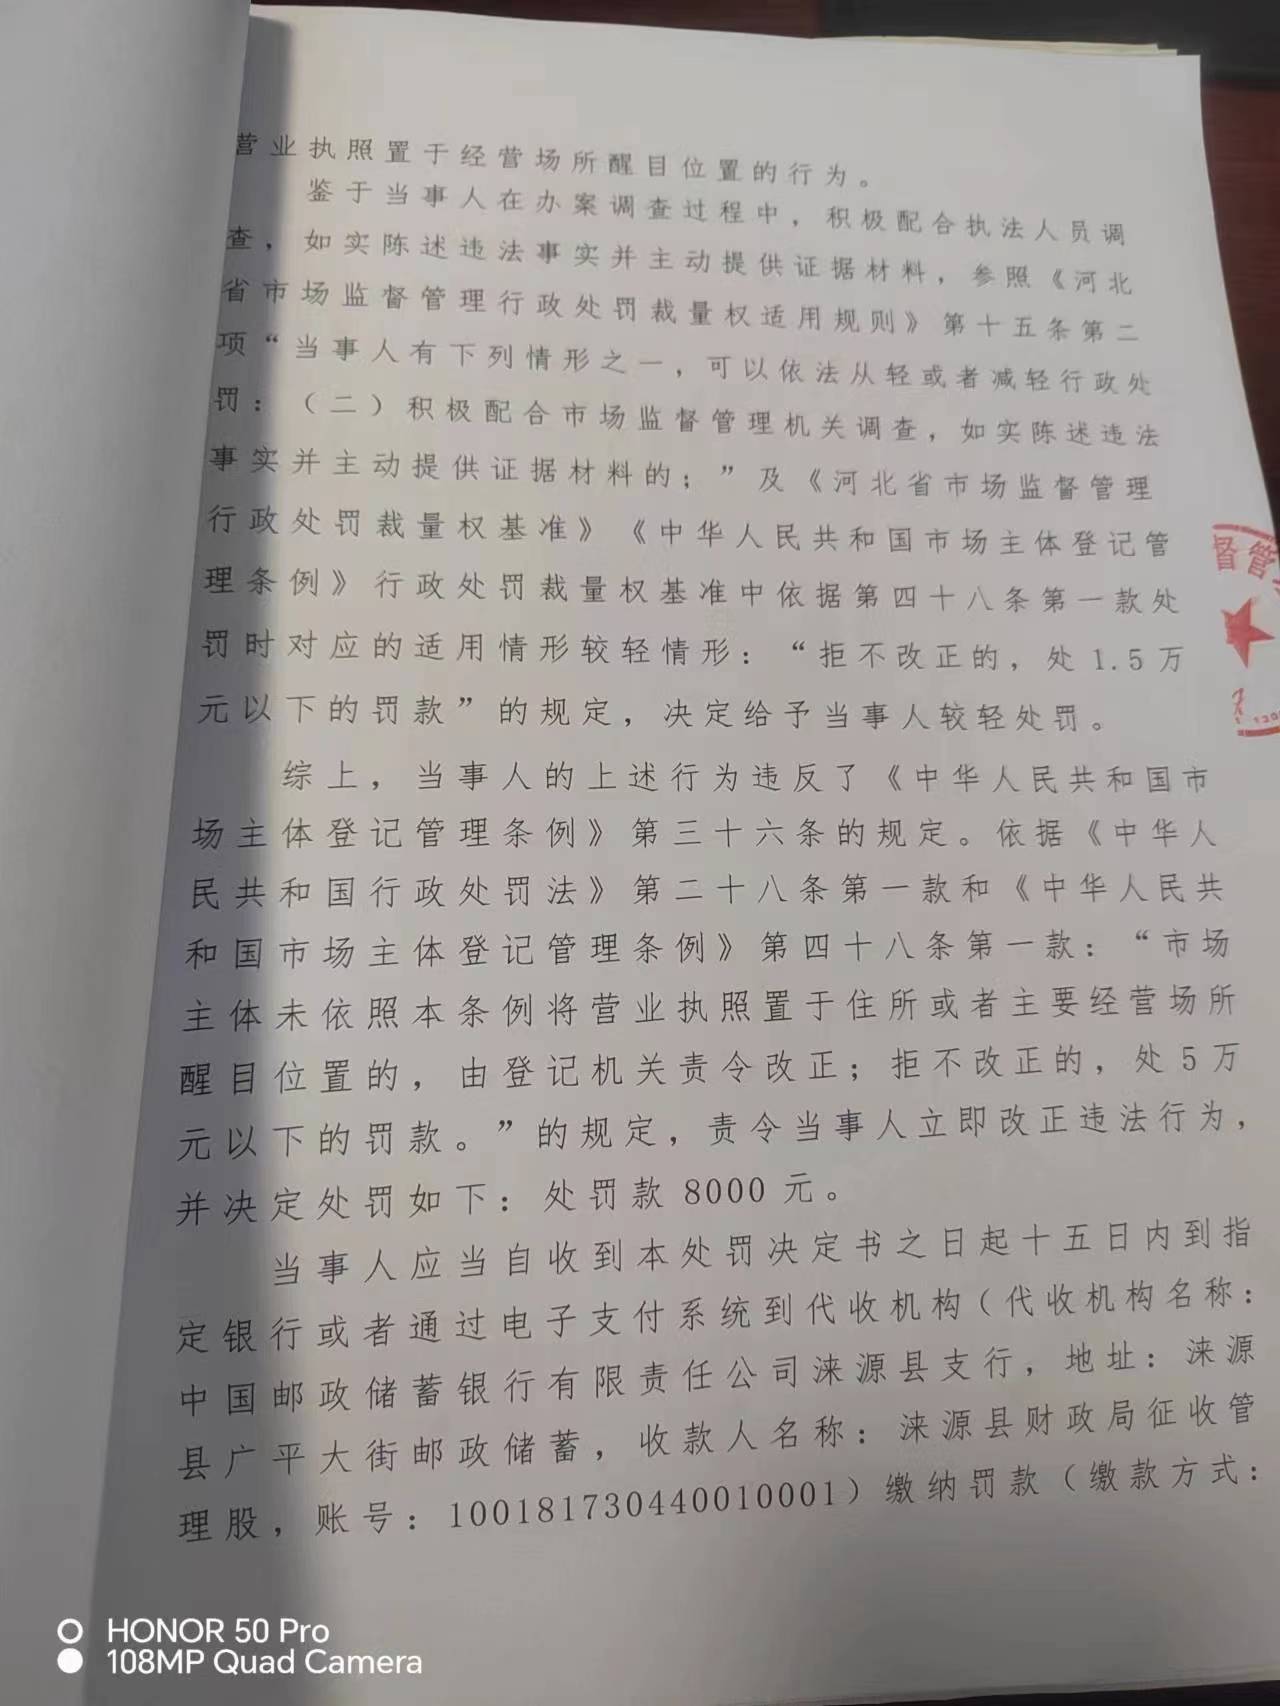 营业执照置于经营场所醒目位置的行为。
鉴于当事人在办案调查过程中，积极配合执法人员调
查，如实陈述违法事实并主动提供证据材料，参照《河北
省市场监督管理行政处罚裁量权适用规则》第十五条第二
项“当事人有下列情形之一，可以依法从轻或者减轻行政处
罚：（二）积极配合市场监督管理机关调查，如实陈述违法
事实并主动提供证据材料的；”及《河北省市场监督管理
行政处罚裁量权基准》《中华人民共和国市场主体登记管
理条例》行政处罚裁量权基准中依据第四十八条第一款处
罚时对应的适用情形较轻情形：“拒不改正的，处1.5万
元以下的罚款”的规定，决定给予当事人较轻处罚。
综上，当事人的上述行为违反了《中华人民共和国市
场主体登记管理条例》第三十六条的规定。依据《中华人
民共和国行政处罚法》第二十八条第一款和《中华人民共
和国市场主体登记管理条例》第四十八条第一款：“市场
主体未依照本条例将营业执照置于住所或者主要经营场所
醒目位置的，由登记机关责令改正；拒不改正的，处5万
元以下的罚款。”的规定，责令当事人立即改正违法行为，
并决定处罚如下：处罚款8000元。
当事人应当自收到本处罚决定书之日起十五日内到指
定银行或者通过电子支付系统到代收机构（代收机构名称：
中国邮政储蓄银行有限责任公司涞源县支行，地址：涞源
县广平大街邮政储蓄，收款人名称：涞源县财政局征收管
理股，账号：100181730440010001）缴纳罚款（缴款方式：
督管
HONOR 50 Pro
108MP Quad Camera